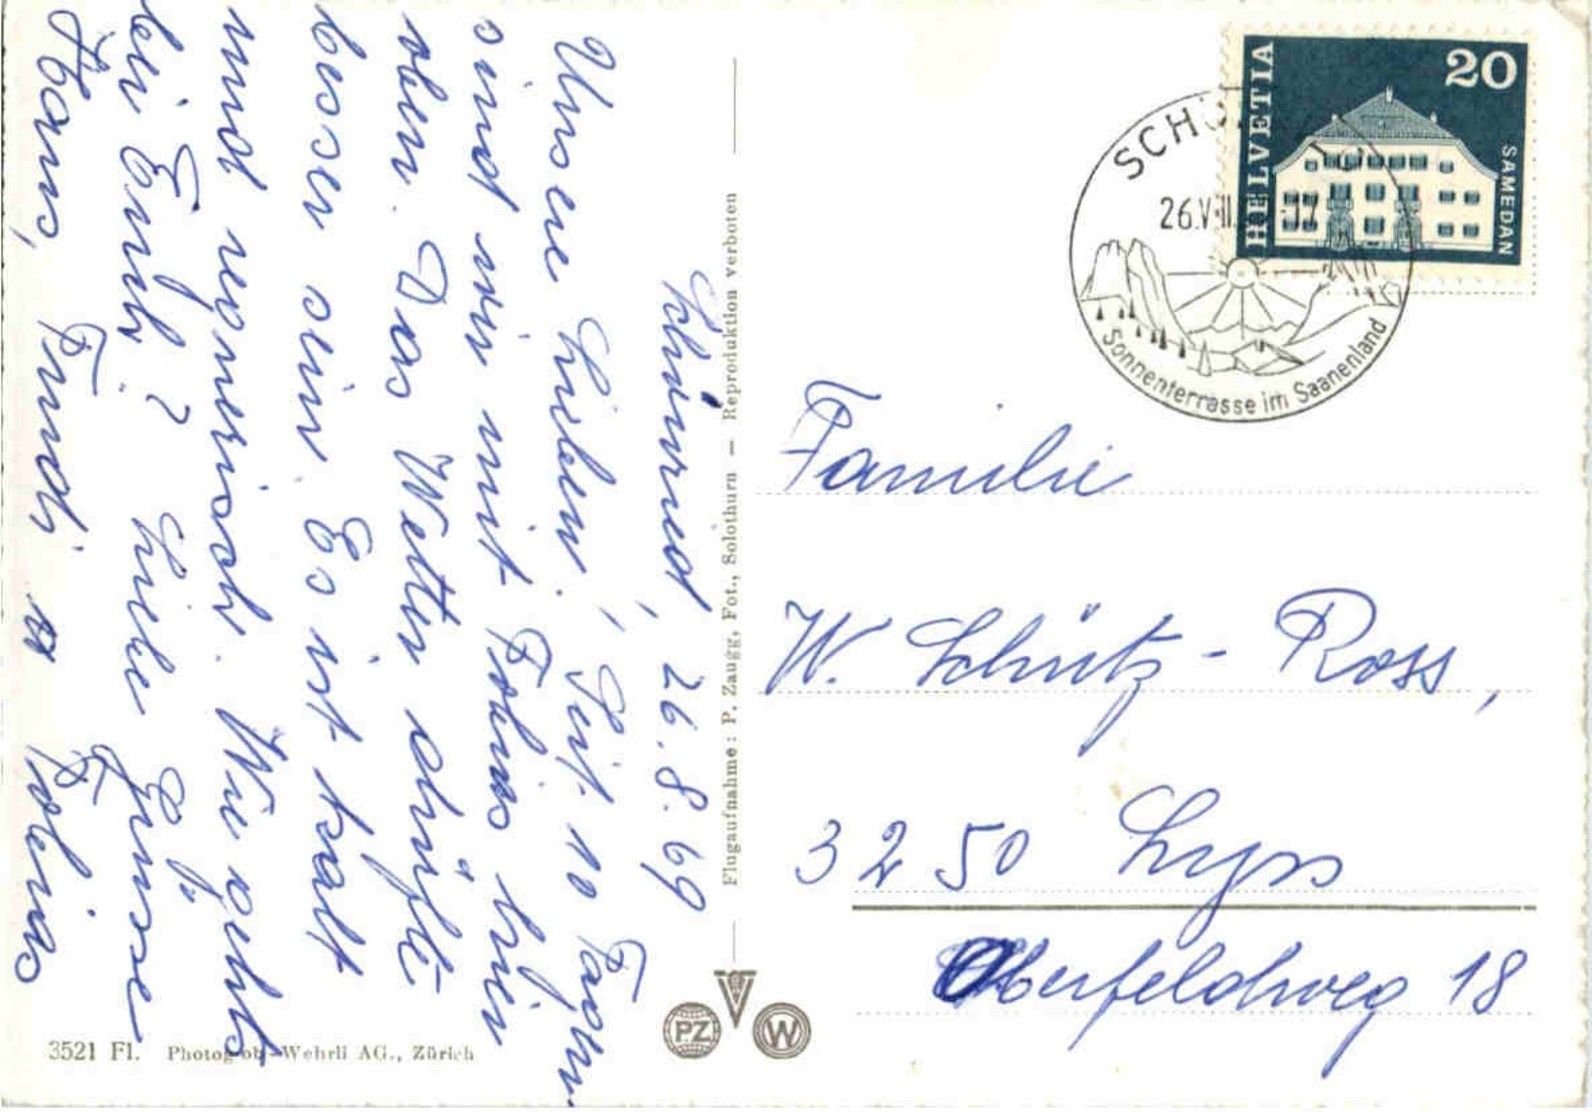 Schönried, 26.8.69
Unsere Lieben! Seit 10 Tagen
sind wir mit Tobias hier
oben. Das Wetter dürfte
besser sein. Es ist kalt
und regnerisch. Wie gehts
bei Euch? Liebe Grüsse
Hans, Trudi u Tobias
Flugaufnahme: P. Zaugg, Fot., Solothurn — Reproduktion verboten
HELVETIA
20
SAMEDAN
SCH
26.VIII. 17
Sonnenterrasse im Saanenland
Familie
W. Schütz-Ross,
3250 Lyss
Oberfeldweg 18
PZ
W
3521 Fl. Photogl Wehrli AG., Zürich